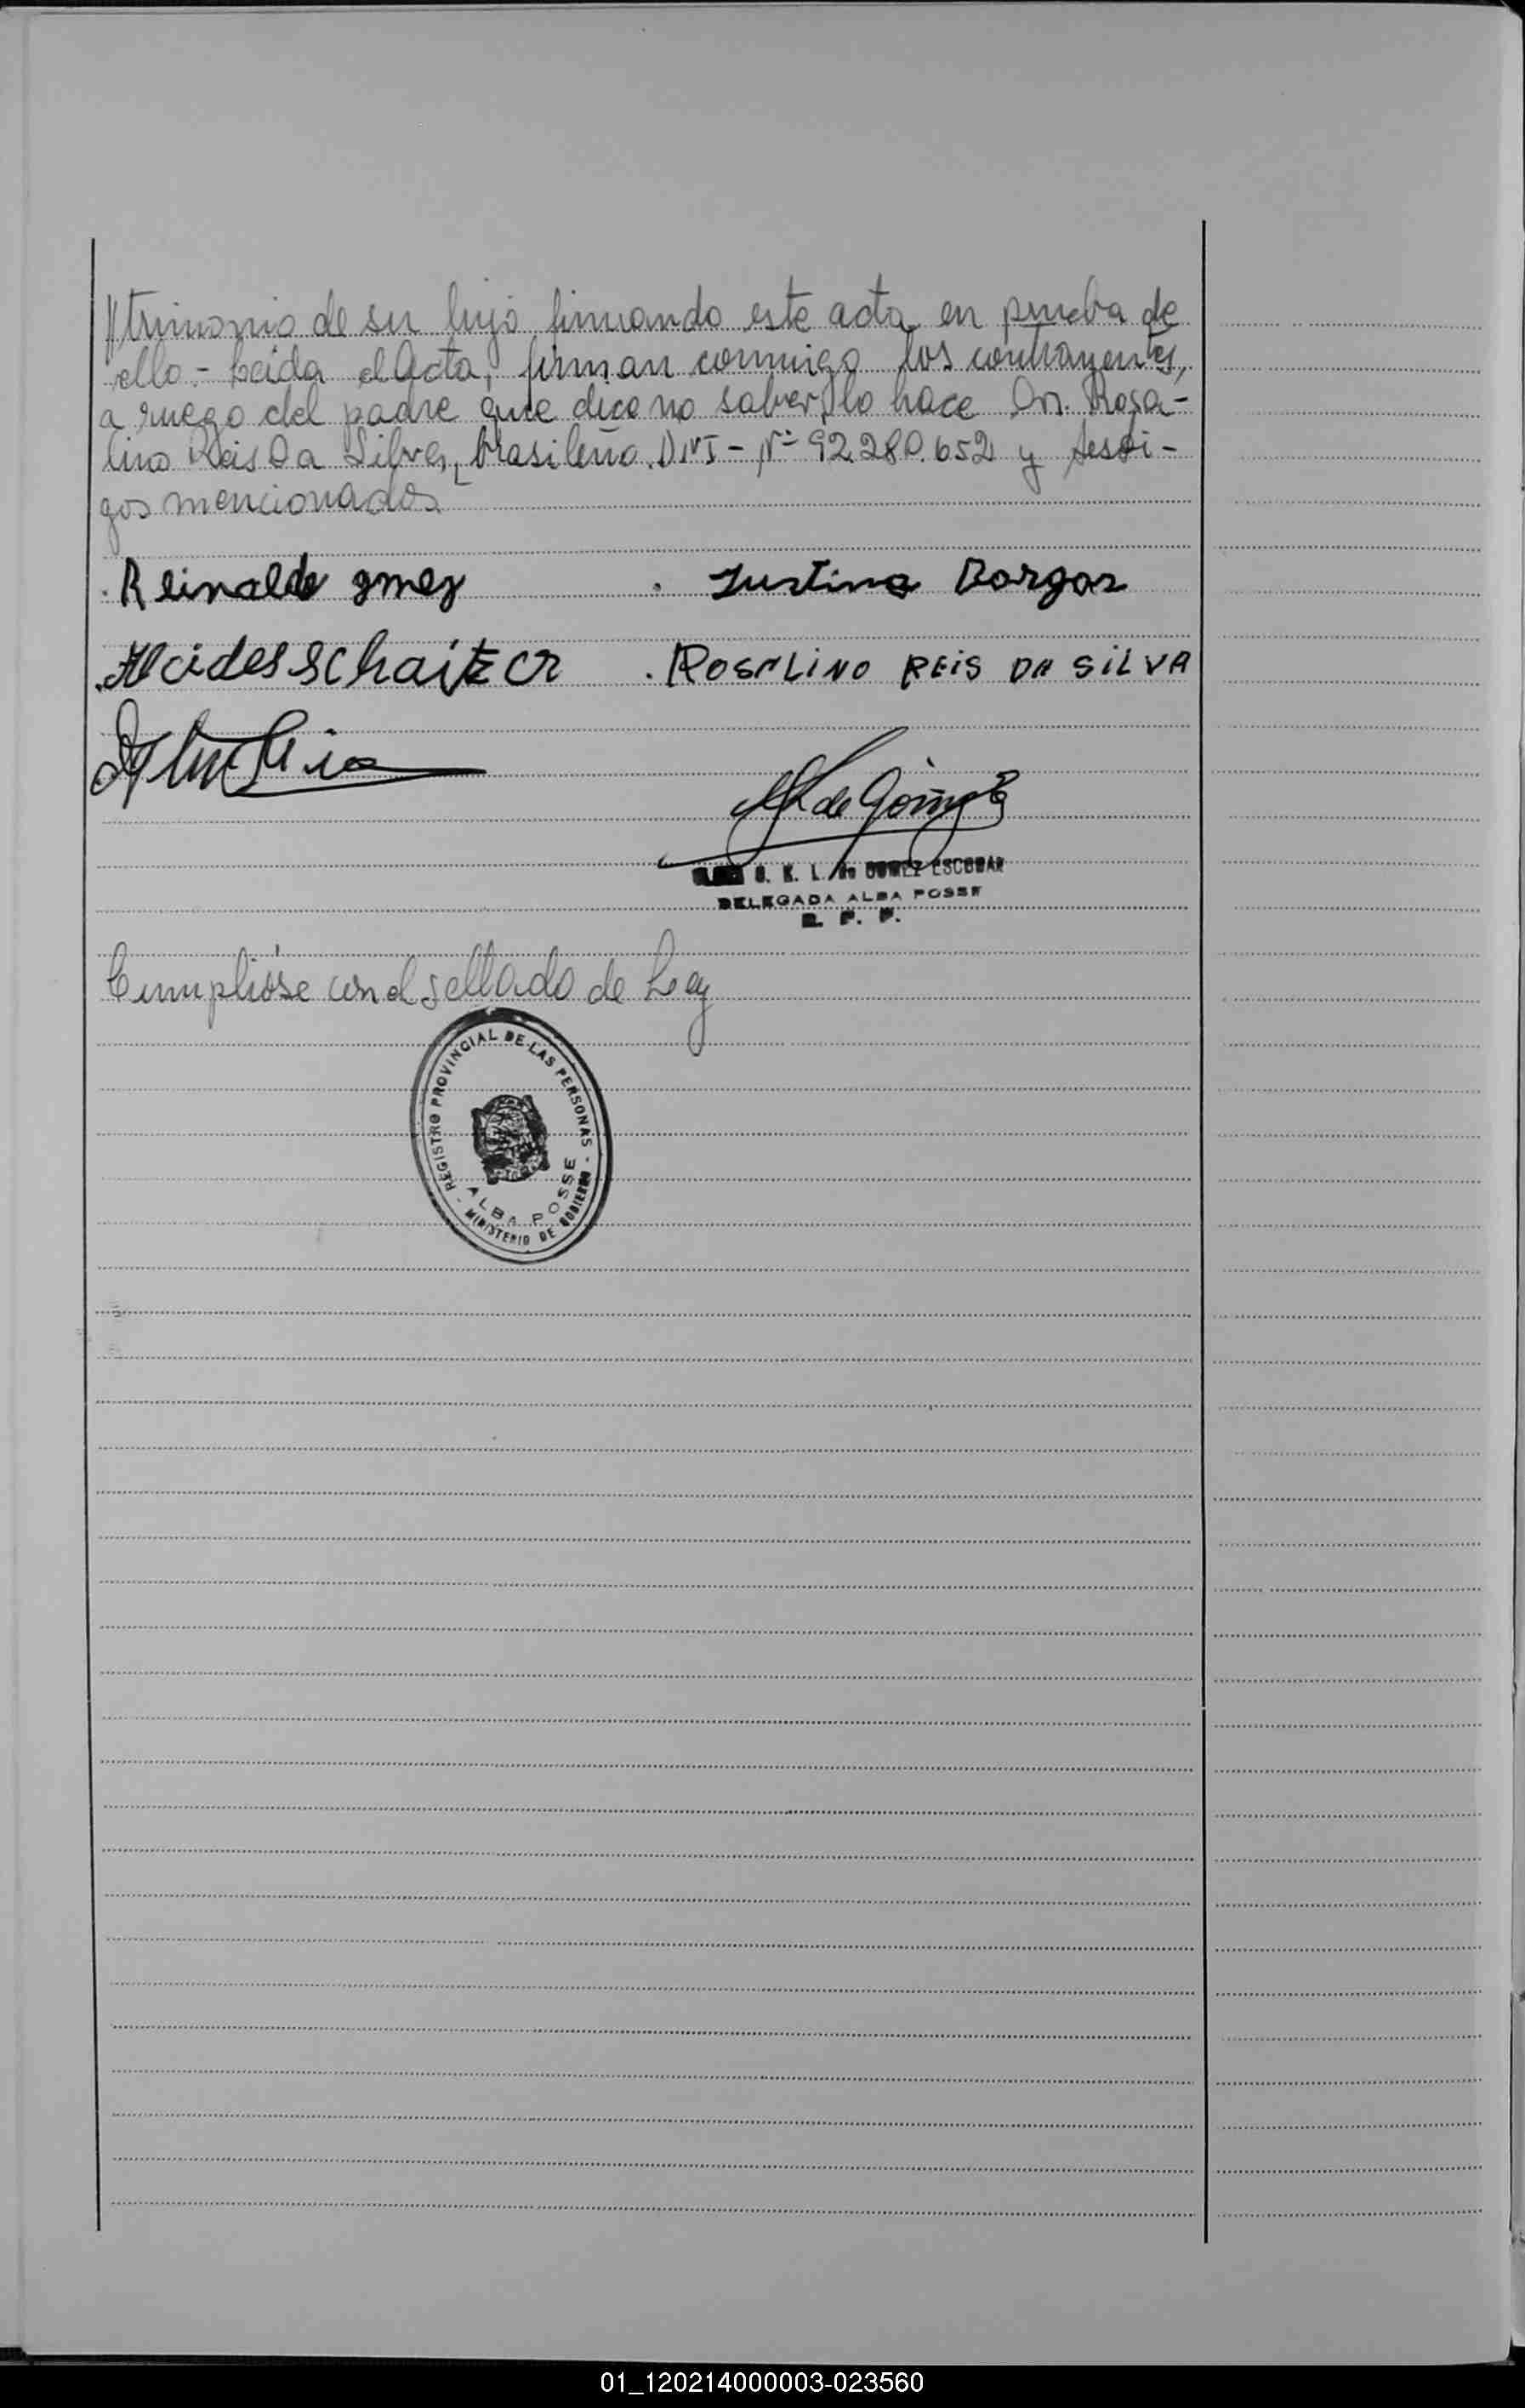 //trimonio de su hijo firmando este acta en prueba de
ello.- Leida el Acta, firman conmigo los contrayentes,
a ruego del padre que dice no saber, lo hace Dn. Rosa-
lino Reis Da Silva, brasileño. DNI - Nº 92.280.652 y testi-
gos mencionados.
Reinaldo gmez . Justina Borgas
Alcides schaitzcr . ROSALINO REIS DA SILVA
de
G. K. L. de GOMEZ ESCOBAR
DELEGADA ALBA POSSE
R. P. P.
Cumplióse con el sellado de Ley
REGISTRO PROVINCIAL DE LAS PERSONAS -
ALBA POSSE
- MINISTERIO DE GOBIERNO
01_120214000003-023560